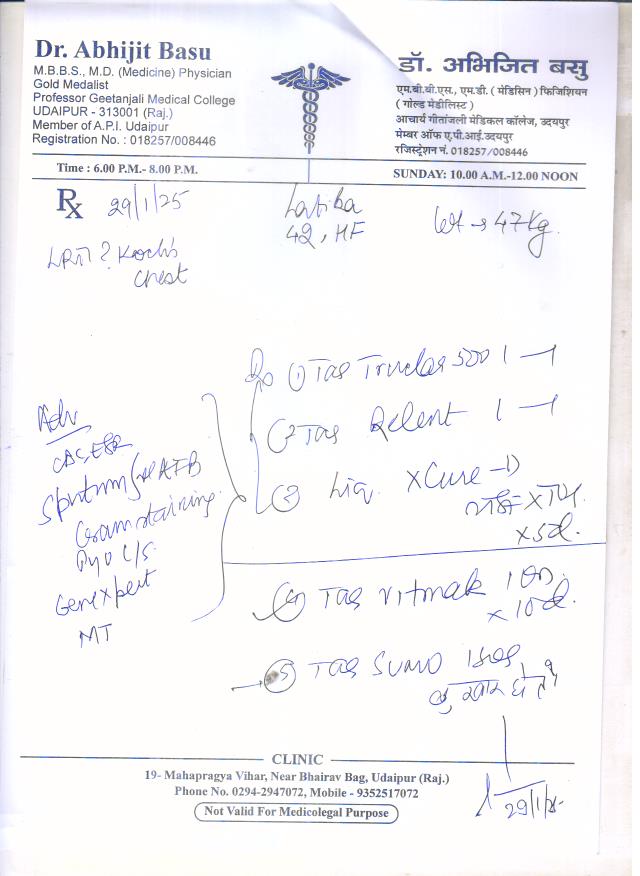 Dr. Abhijit Basu
M.B.B.S., M.D. (Medicine) Physician
Gold Medalist
Professor Geetanjali Medical College
UDAIPUR - 313001 (Raj.)
Member of A.P.I. Udaipur
Registration No. : 018257/008446
डॉ. अभिजित बसु
एम.बी.बी.एस., एम.डी. ( मेडिसिन ) फिजिशियन
( गोल्ड मेडीलिस्ट )
आचार्य गीतांजली मेडिकल कॉलेज, उदयपुर
मेम्बर ऑफ ए.पी.आई.उदयपुर
रजिस्ट्रेशन नं. 018257/008446
Time : 6.00 P.M.- 8.00 P.M.
SUNDAY: 10.00 A.M.-12.00 NOON
Rx 29/1/25
42,
47 Kg.
LRTI ? Koch's
Chest
① Tab 500 1 — 1
② Tab Relent 1 — 1
③ Liq. XCure
x 5d.
④ Tab Vitmak 1 OD.
x 10d.
⑤ Tab Sumo
Adv
CBC, ESR
Sputum AFB
Gram staining
Pyo C/S
Genexpert
MT
29/1/25
CLINIC
19- Mahapragya Vihar, Near Bhairav Bag, Udaipur (Raj.)
Phone No. 0294-2947072, Mobile - 9352517072
Not Valid For Medicolegal Purpose